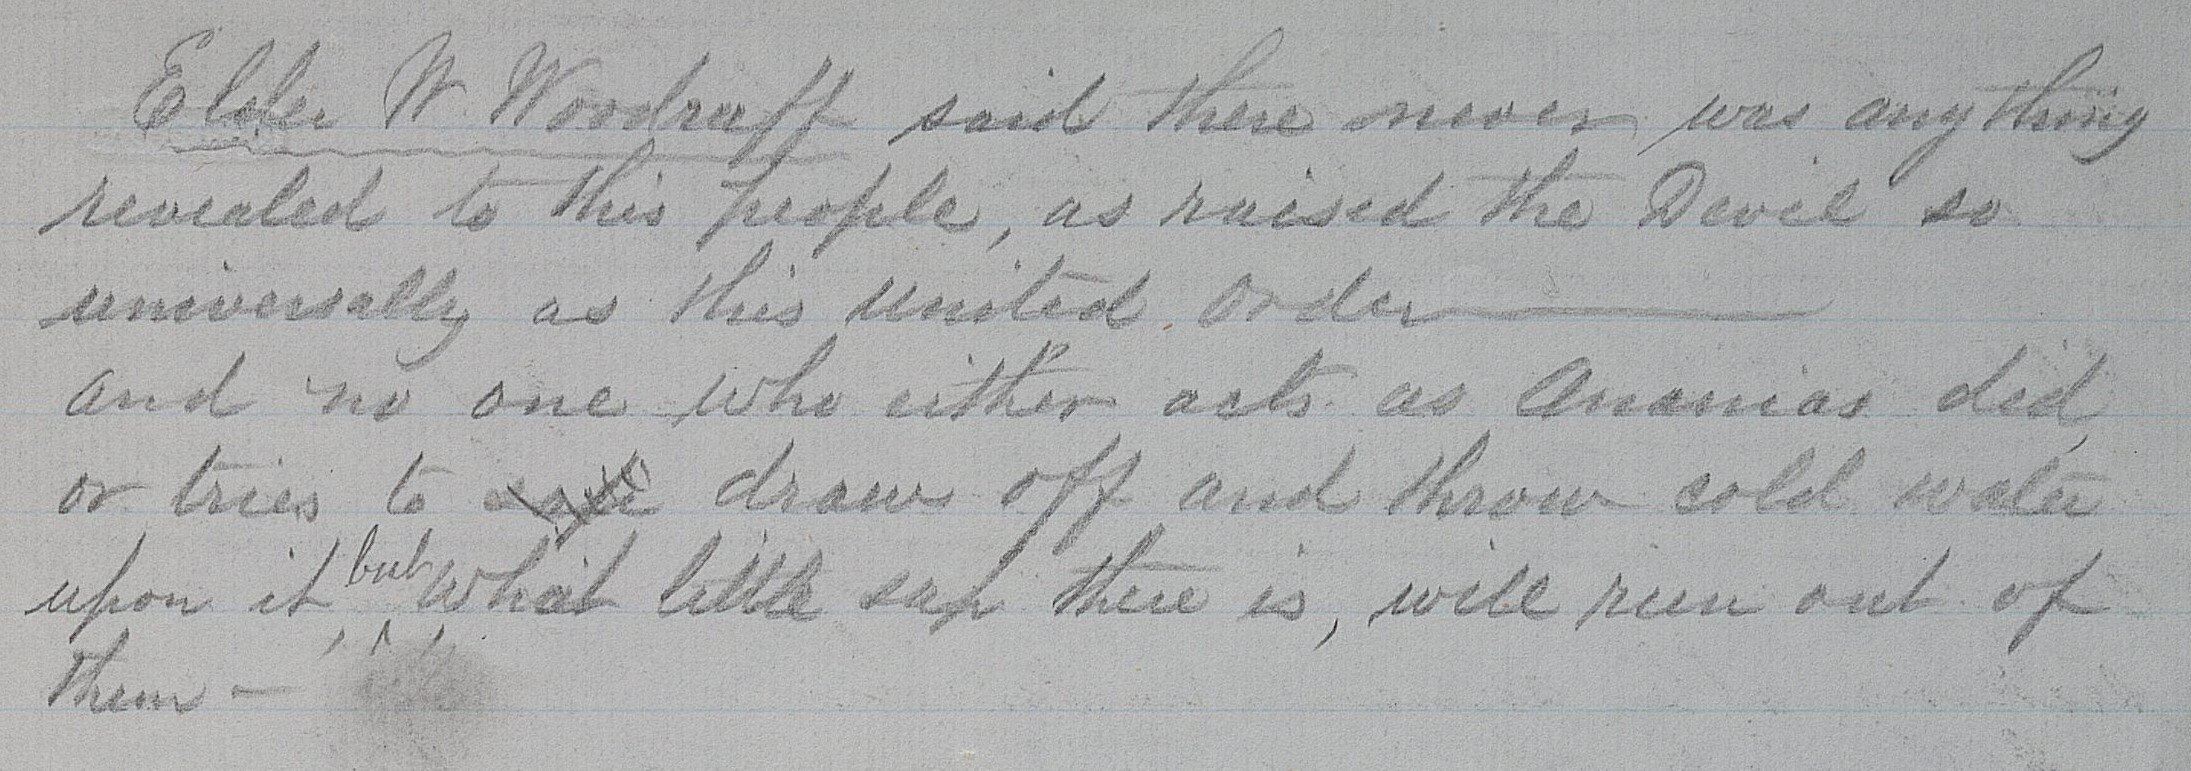 Elder W Woodruff said there never was any thing
revealed to this people, as raised the Devil so
universally as this united Order
and no one who either acts as Ananias did,
or tries to draw off and throw cold water
upon it, but, what little sap there is, will run out of
them —